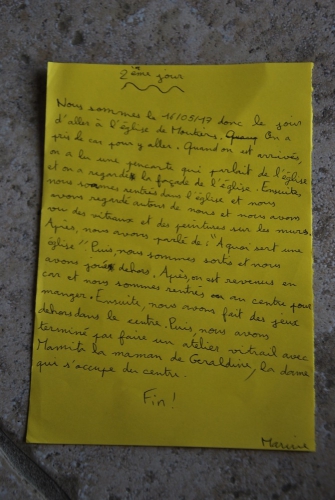 2ème jour
Nous sommes le 16/05/17 donc le jour
d'aller à l'église de Moutiers. On a
pris le car pour y aller. Quand on est arrivés,
on a lu une pencarte qui parlait de l'église
et on a regardé la façade de l'église. Ensuite,
nous sommes rentrés dans l'église et nous
avons regardé autour de nous et nous avons
vu des vitraux et des peintures sur les murs.
Après, nous avons parlé de : "A quoi sert une
église". Puis, nous sommes sortis et nous
avons joués dehors. Après, on est revenus en
car et nous sommes rentrés au centre pour
manger. Ensuite, nous avons fait des jeux
dehors dans le centre. Puis, nous avons
terminé par faire un atelier vitrail avec
la maman de Geraldine, la dame
qui s'occupe du centre.
Fin !